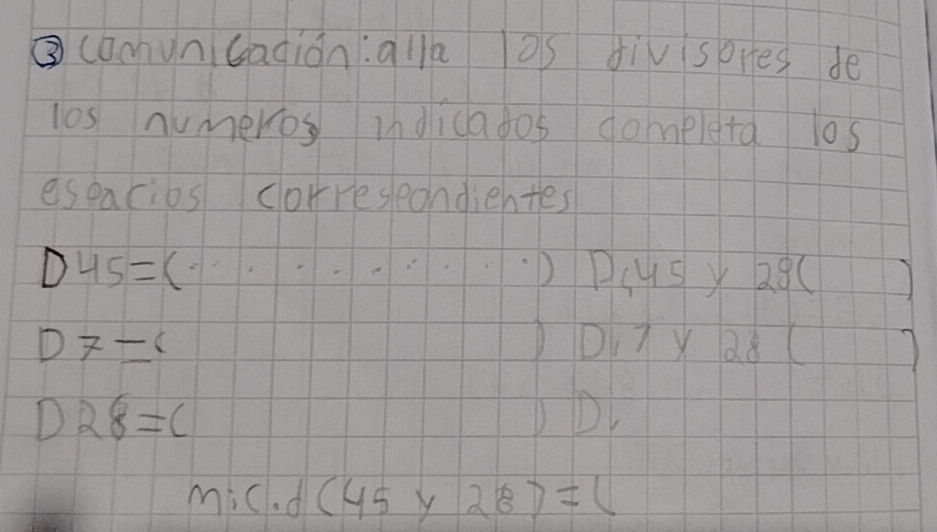 ③ comunicación: alla los divisores de
los numeros indicados completa los
espacios correspondientes
D45=(...........) D,45 y 28( )
D7=( ) D,7 y 28 ( )
D28=( ) D,
m.c.d (45 y 28) = (